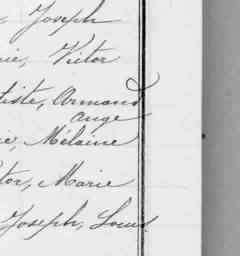 Joseph
ie, Victor
tiste, Armand
Ange
ie, Mélaine
tor, Marie
Joseph, Louis